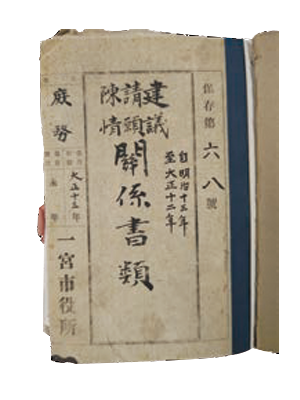 保存第六八號
自明治十三年
至大正十二年
建議
請願
陳情
關係書類
庶務
大正十三年
永年
一宮市役所